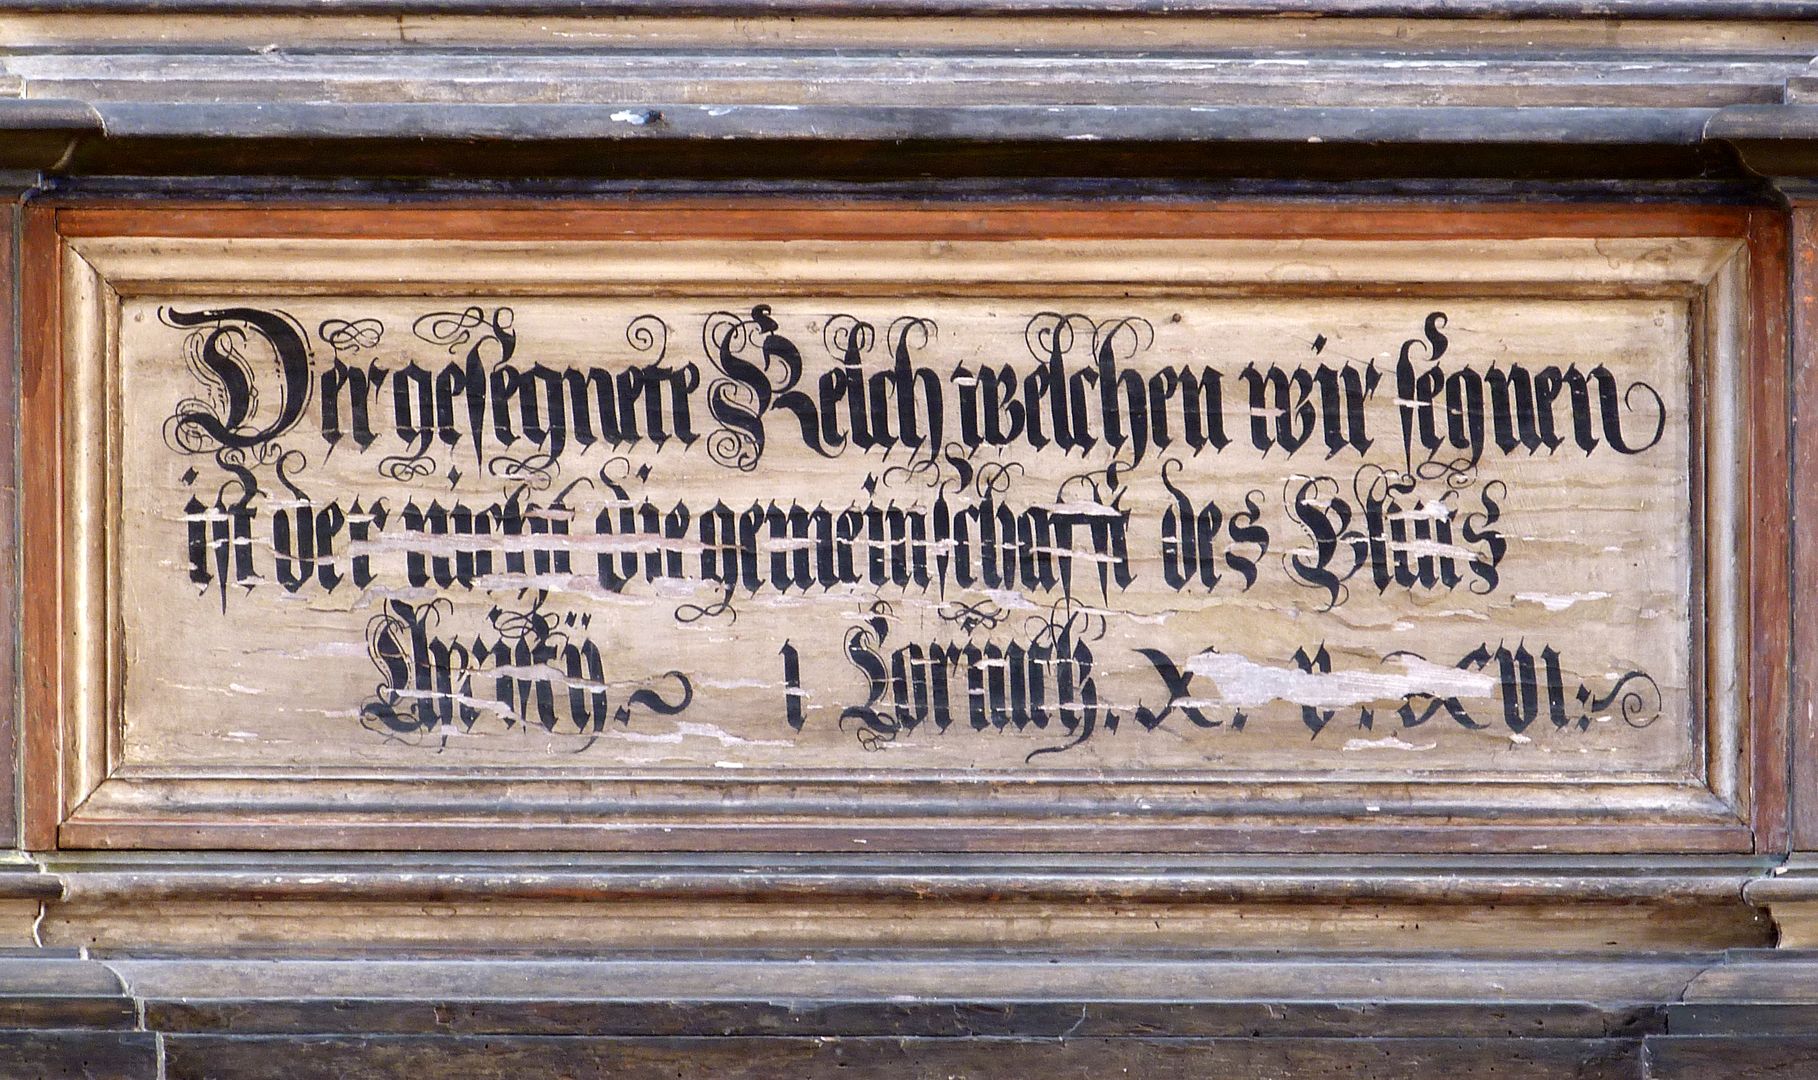 Der gesegnete Kelch welchen wir segnen
ist der nicht die gemeinschafft des Bluts
Christÿ. 1 Corinth. X. v. XVI.